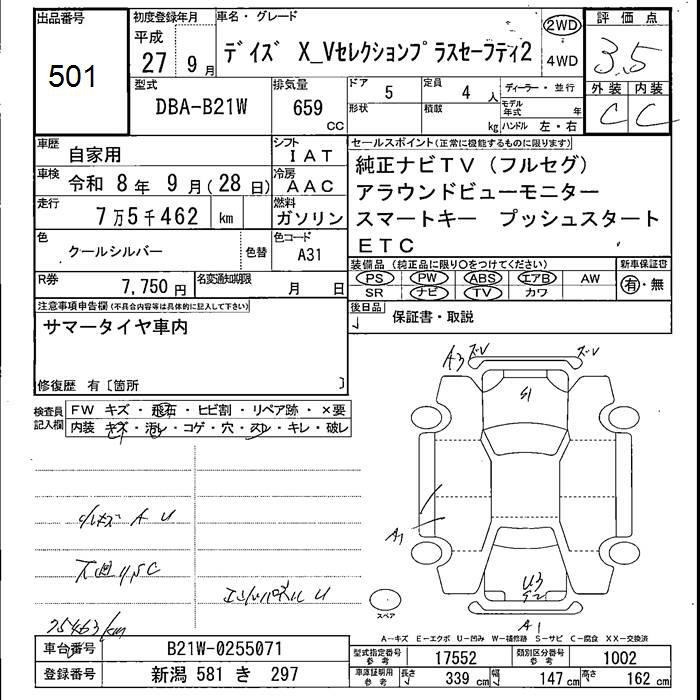 出品番号
501
初度登録年月
平成
27 9月
車名・グレード
デイズ X_Vセレクションプラスセーフティ2
2WD
4WD
評価点
3.5
外装 内装
C C
型式
DBA-B21W
排気量
659
CC
ドア
5
定員
4 人
形状
積載
kg
ディーラー・並行
モデル年式 年
ハンドル 左・右
車歴
自家用
シフト
IAT
車検
令和 8年 9月(28日)
冷房
AAC
走行
7万5千462 km
燃料
ガソリン
色
クールシルバー
色替
色コード
A31
R券
7,750円
名変通知期限
月 日
セールスポイント(正常に機能するものに限ります)
純正ナビTV(フルセグ)
アラウンドビューモニター
スマートキー プッシュスタート
ETC
装備品(純正品に限り○をつけてください)
PS PW ABS エアB AW
SR ナビ TV カワ
新車保証書
有・無
後日品
保証書・取説
注意事項申告欄(不具合内容等は具体的に記入して下さい)
サマータイヤ車内
修復歴 有〔箇所 〕
検査員記入欄
FW キズ・飛石・ヒビ割・リペア跡・×要
内装 キズ・汚レ・コゲ・穴・スレ・キレ・破レ
A3
ズV
ズV
S1
小キズ A U
A1
エンジンパネル U
75463/km
U3
S2
A1
スペア
A-キズ E-エクボ U-凹み W-補修跡 S-サビ C-腐食 XX-交換済
車台番号
B21W-0255071
登録番号
新潟 581 き 297
型式指定番号
参考
17552
類別区分番号
参考
1002
車庫証明用
参考
長さ
339 cm
幅
147 cm
高さ
162 cm